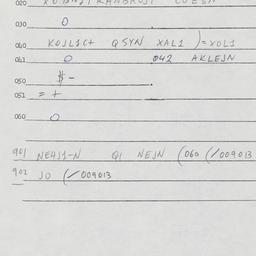 020
030 O
040 KOJL1C+ QSYN XAL1 )=XOL1
041 O 042 AKLEJN
050 $-
051 =+
060 O
901 NE4J1-N Q1 NEJN (060 (/009013
902 JO (/009013